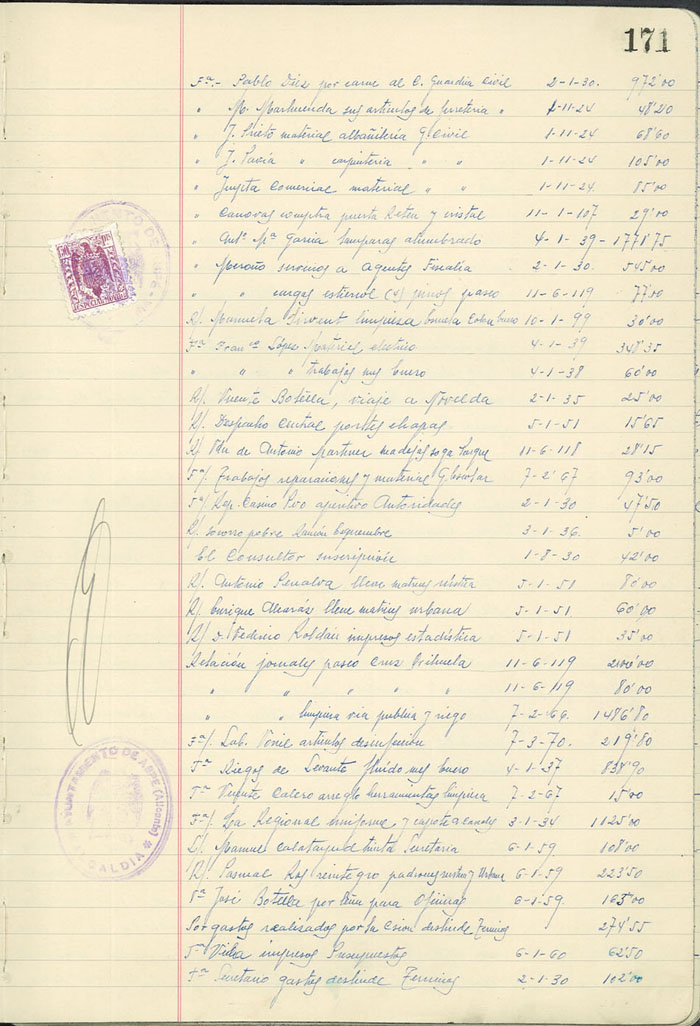 171
Fª.- Pablo Díez por carne al C. Guardia Civil 2-1-30. 972'00
" M. Marhuenda sus artículos de ferretería " 1-11-24 48'20
" J. Prieto material albañilería G. Civil 1-11-24 68'60
" J. " carpintería " " 1-11-24 105'00
" Jupita Comercial material " " 1-11-24. 85'00
" Canovas compra puerta y cristal 11-1-107 29'00
" Antº Mª Garcia lamparas alumbrado 4-1-39- 1771'75
" Meroño a Agentes Fiscalía 2-1-30. 545'00
" " cargas estiercol (4) paseo 11-6-119 77'00
R/. Manuela Sirvent limpieza Escuela 10-1-99 30'00
Fª Franco López Material electrico 4-1-39 348'35
" " " trabajos mes Enero 4-1-38 60'00
R/. Vicente Botella, viaje a Novelda 2-1-35 25'00
R/. Despacho Central portes chapas 5-1-51 15'65
R/ Vda de Antonio Martinez madejas soga 11-6-118 28'15
Fª/. Trabajos reparaciones y material G. Escolar 7-2-67 93'00
Fª/ Rep. Casino aperitivo Autoridades 2-1-30 47'50
R/. socorro pobre Ramón 3-1-36. 5'00
El Consultor suscripción 1-8-30 42'00
R/. Antonio Penalva lleve matrices rústica 5-1-51 80'00
R/. Enrique Alcaráz lleve matrices urbana 5-1-51 60'00
R/. D. Federico Roldán impresos estadística 5-1-51 35'00
Relación jornales paseo Cruz Orihuela 11-6-119 2100'00
" " " " " 11-6-119 80'00
" " limpieza via publica y riego 7-2-66. 1486'80
Fª/. Lab. articulos desinfección 7-3-70. 219'80
Fª Riegos de Levante fluído mes Enero 4-1-37 838'90
Fª Vicente Calero arreglo herramientas limpieza 7-2-67 15'00
Fª/. La Regional uniforme y capote 3-1-34 1125'00
Manuel Calatayud tinta Secretaria 6-1-59. 108'00
R/. Pascual Ros reintegro padrones rustica y Urbana 6-1-59 223'50
Fª José Botella por leña para Oficinas 6-1-59. 163'00
Por gastos realizados por la Cision deslinde Terminos 274'55
Fª Villa impresos Presupuestos 6-1-60 62'50
Fª Secretario gastos deslinde Terminos 2-1-30 102'00
AYUNTAMIENTO DE ASPE (Alicante)
ALCALDIA